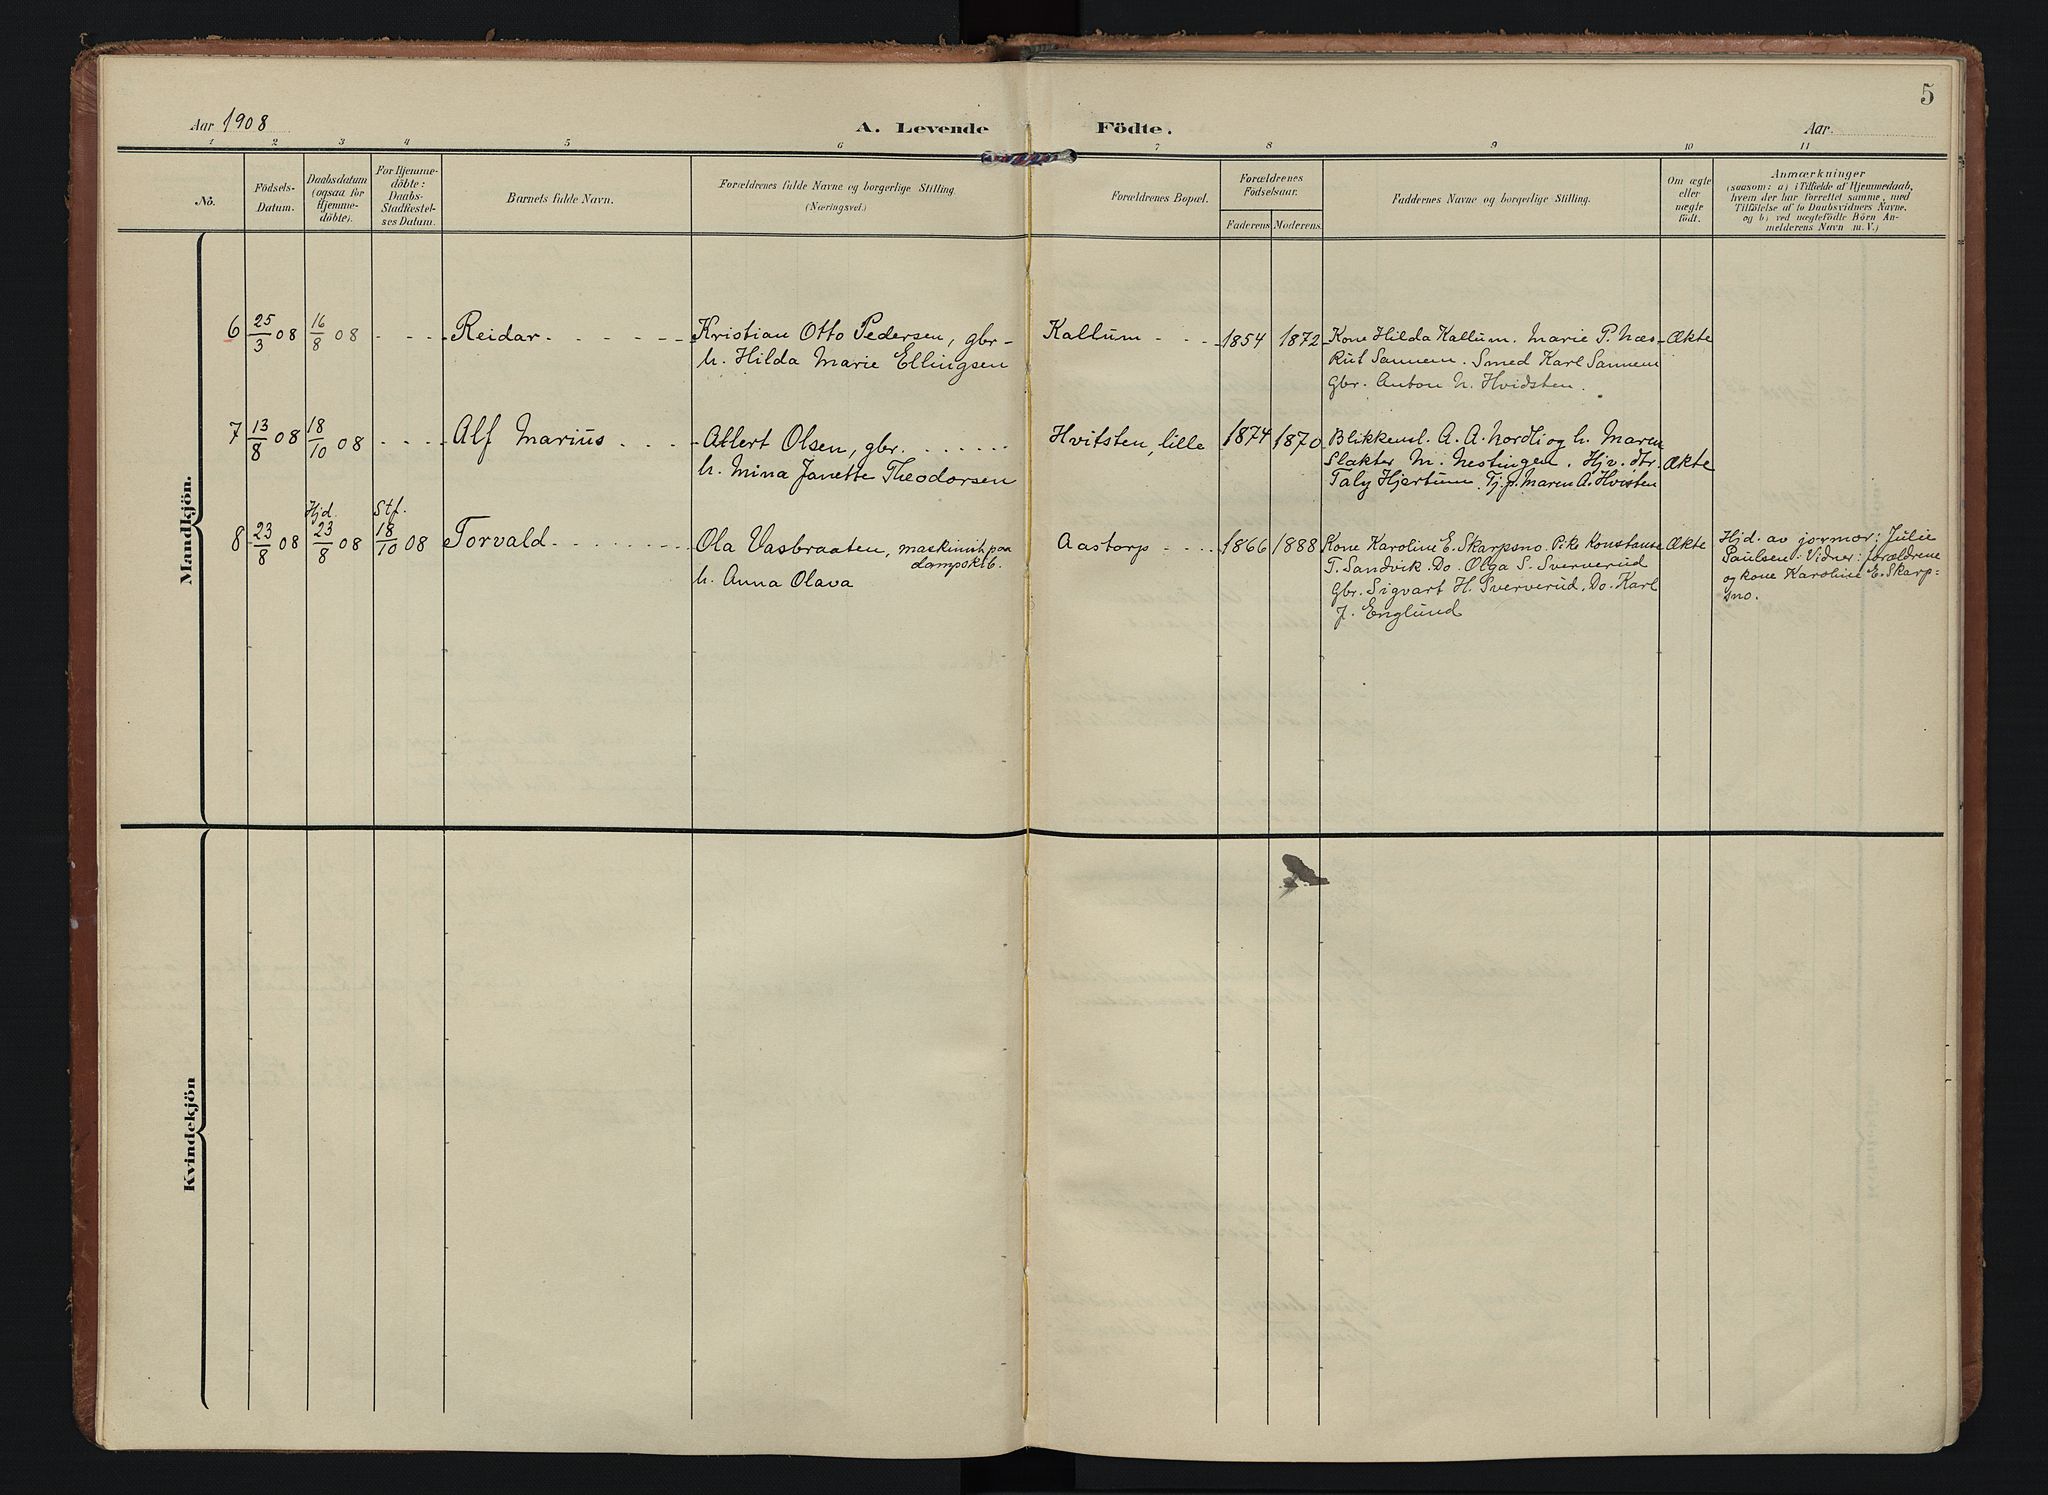 5
Aar 1908
A. Levende Födte.
Aar
1 2 3 4 5 6 7 8 9 10 11
No.
Födsels-
Datum.
Daabsdatum
(ogsaa for
Hjemme-
döbte).
For Hjemme-
döbte:
Daabs-
Stadfæstel-
ses Datum.
Barnets fulde Navn.
Forældrenes fulde Navne og borgerlige Stilling.
(Næringsvei.)
Forældrenes Bopæl.
Forældrenes
Födselsaar.
Faderens Moderens.
Faddernes Navne og borgerlige Stilling.
Om ægte
eller
uægte
födt.
Anmærkninger
(saasom: a) i Tilfælde af Hjemmedaab,
hvem der har forrettet samme, med
Tilföielse af to Daabsvidners Navne,
og b) ved uægtefödte Börn An-
melderens Navn m. V.)
Mandkjön.
6 25/3 08 16/8 08 - - - - Reidar - - - Kristian Otto Pedersen, gbr -
h. Hilda Marie Ellingsen
Kallum - - - 1854 1872 Kone Hilda Kallum. Marie P. Næs - Ækte
Rut Sannem. Smed Karl Sannem
Gbr. Anton N. Hvidsten.
7 13/8 08 18/10 08 - - - - Alf Marius - - - Atlert Olsen, gbr. - - -
h. Mina Janette Theodorsen
Hvitsten, lille 1874 1870 Blikkensl. A. A. Nordli og h. Maren
Slakter M. Nestingen. Hjv. dtr. Ækte
Taly Hjertum. Tj. p. Maren A. Hvisten
Hjd. Stf.
8 23/8 08 23/8 08 18/10 08 Torvald - - - Ola Vasbraaten, maskinist paa
dampskib.
h. Anna Olava
Aastorp - - - 1866 1888 Kone Karoline E. Skarpsno. Pike Konstanse Ækte
T. Sandvik. Do. Olga S. Sververud
Gbr. Sigvart H. Sververud. Do. Karl
J. Englund
Hjd. av jormor: Julie
Paulsen. Vidner: forældrene
og kone Karoline E. Skarp-
sno.
Kvindekjön